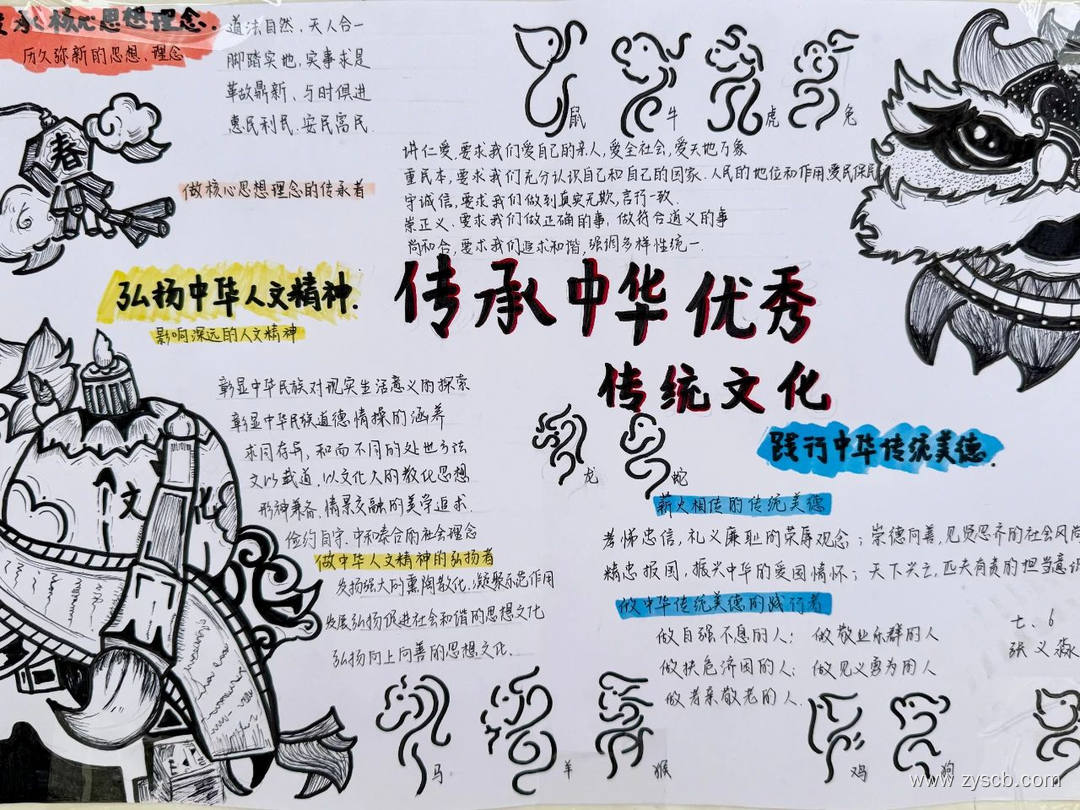 承核心思想理念.
历久弥新的思想、理念
道法自然，天人合一
脚踏实地，实事求是
革故鼎新、与时俱进
惠民利民、安民富民.
做核心思想理念的传承者
春
鼠
牛
虎
兔
讲仁爱，要求我们爱自己的亲人，爱全社会，爱天地万象
重民本，要求我们充分认识自己和自己的国家、人民的地位和作用爱民保民
守诚信，要求我们做到真实无欺，言行一致.
崇正义，要求我们做正确的事，做符合道义的事
尚和合，要求我们追求和谐，强调多样性统一.
传承中华优秀
传统文化
弘扬中华人文精神.
影响深远的人文精神
彰显中华民族对现实生活意义的探索
彰显中华民族道德情操的涵养
求同存异，和而不同的处世方法
文以载道，以文化人的教化思想
形神兼备，情景交融的美学追求.
俭约自守，中和泰合的社会理念
做中华人文精神的弘扬者
发扬强大的熏陶教化，凝聚示范作用
发展弘扬促进社会和谐的思想文化
弘扬向上向善的思想文化.
文化
龙
蛇
践行中华传统美德.
薪火相传的传统美德
孝悌忠信，礼义廉耻的荣辱观念；崇德向善，见贤思齐的社会风尚
精忠报国，振兴中华的爱国情怀；天下兴亡，匹夫有责的担当意识
做中华传统美德的践行者
做自强不息的人；做敬业乐群的人
做扶危济困的人；做见义勇为的人
做孝亲敬老的人.
七.6
张义淼
马
羊
猴
鸡
狗
www.zyscb.com